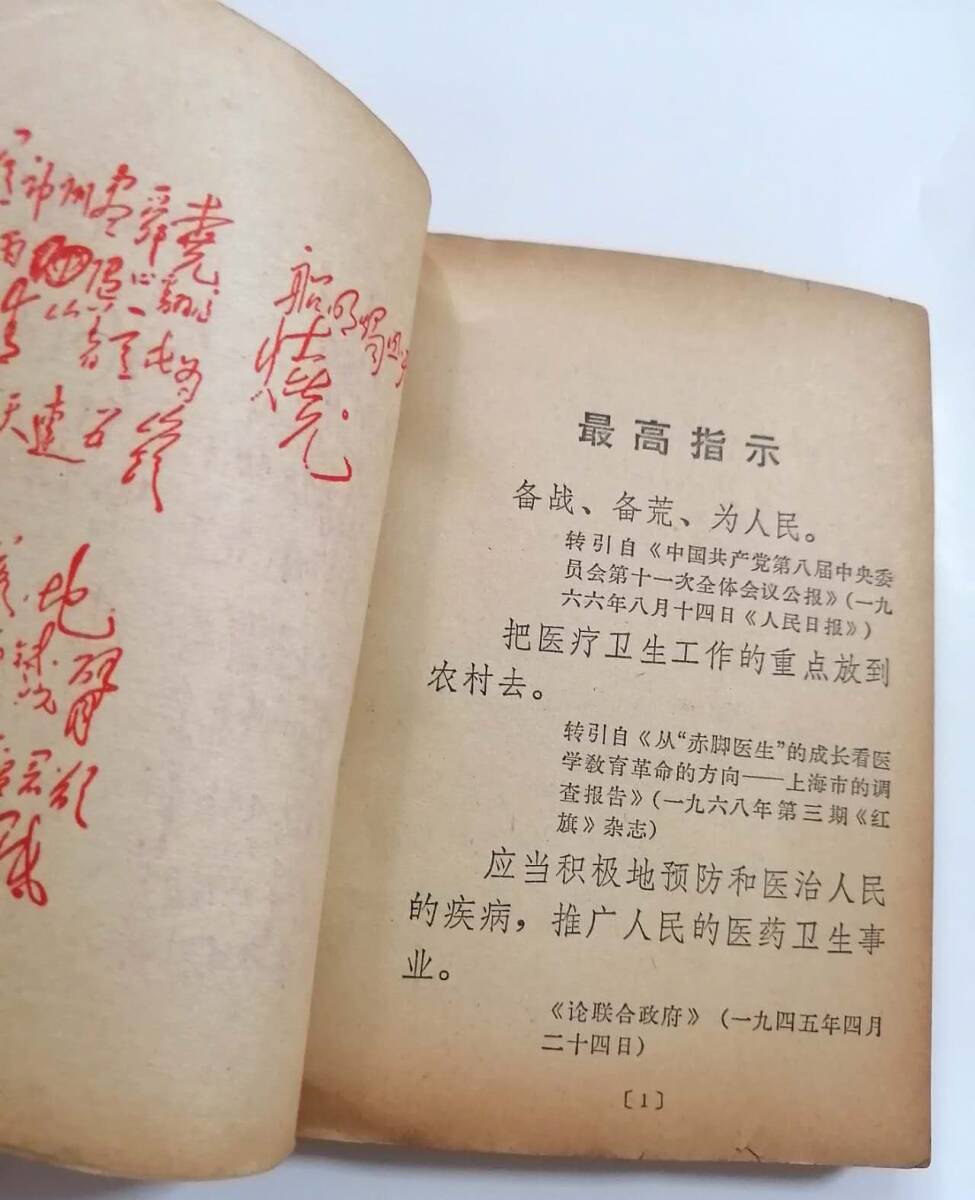 神州尽舜尧
雨 心翻
着意化为
天连五岭
地
铁臂
君欲
船明烛照天
烧
最高指示
备战、备荒、为人民。
转引自《中国共产党第八届中央委
员会第十一次全体会议公报》(一九
六六年八月十四日《人民日报》)
把医疗卫生工作的重点放到
农村去。
转引自《从“赤脚医生”的成长看医
学教育革命的方向——上海市的调
查报告》(一九六八年第三期《红
旗》杂志)
应当积极地预防和医治人民
的疾病，推广人民的医药卫生事
业。
《论联合政府》(一九四五年四月
二十四日)
〔1〕